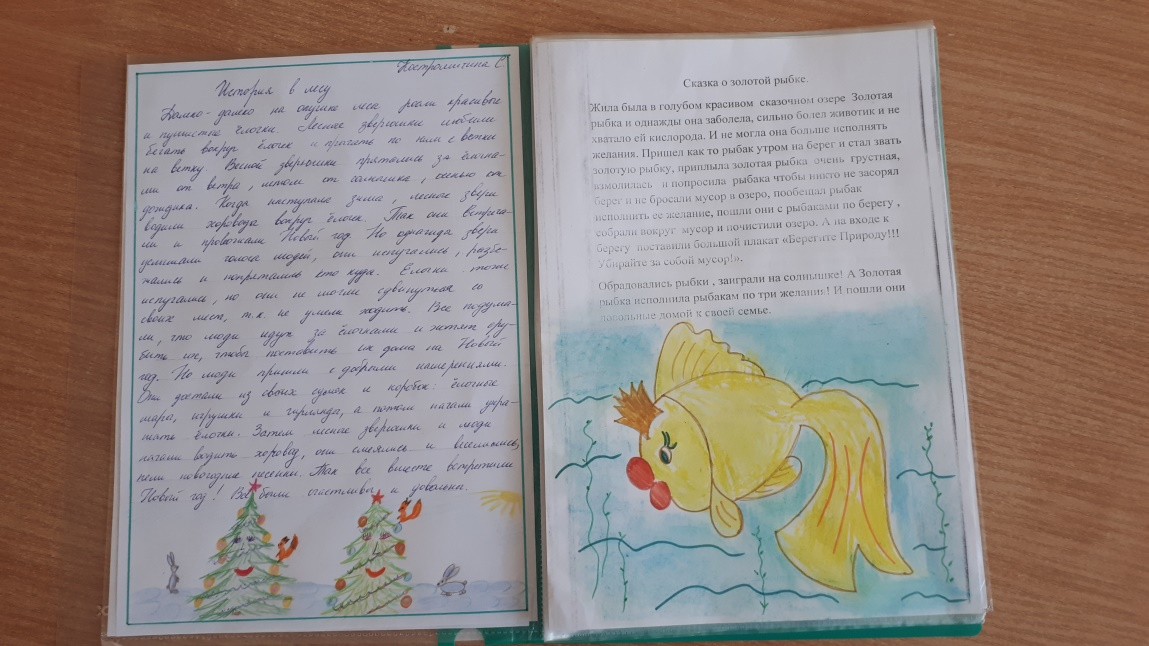 Костромитина С
История в лесу
Далеко-далеко на опушке леса росли красивые
и пушистые ёлочки. Лесные зверюшки любили
бегать вокруг ёлочек и прыгать по ним с ветки
на ветку. Весной зверюшки прятались за ёлочка-
ми от ветра, летом от солнышка, осенью от
дождика. Когда наступала зима, лесные звери
водили хоровода вокруг ёлочек. Так они встреча-
ли и провожали Новый год. Но однажды звери
услышали голоса людей, они испугались, разбе-
жались и попрятались кто куда. Ёлочки тоже
испугались, но они не могли сдвинуться со
своих мест, т.к. не умели ходить. Все подума-
ли, что люди идут за ёлочками и хотят сру-
бить их, чтобы поставить их дома на Новый
год. Но люди пришли с добрыми намерениями.
Они достали из своих сумок и коробок: ёлочные
шары, игрушки и гирлянды, а потом начали укра-
шать ёлочки. Затем лесные зверюшки и люди
начали водить хоровод, они смеялись и веселились,
пели новогодние песенки. Так все вместе встретили
Новый год! Все были счастливы и довольны.
Сказка о золотой рыбке.
Жила была в голубом красивом сказочном озере Золотая
рыбка и однажды она заболела, сильно болел животик и не
хватало ей кислорода. И не могла она больше исполнять
желания. Пришел как то рыбак утром на берег и стал звать
золотую рыбку, приплыла золотая рыбка очень грустная,
взмолилась и попросила рыбака чтобы никто не засорял
берег и не бросали мусор в озеро, пообещал рыбак
исполнить ее желание, пошли они с рыбаками по берегу ,
собрали вокруг мусор и почистили озеро. А на входе к
берегу поставили большой плакат «Берегите Природу!!!
Убирайте за собой мусор!».
Обрадовались рыбки , заиграли на солнышке! А Золотая
рыбка исполнила рыбакам по три желания! И пошли они
довольные домой к своей семье.